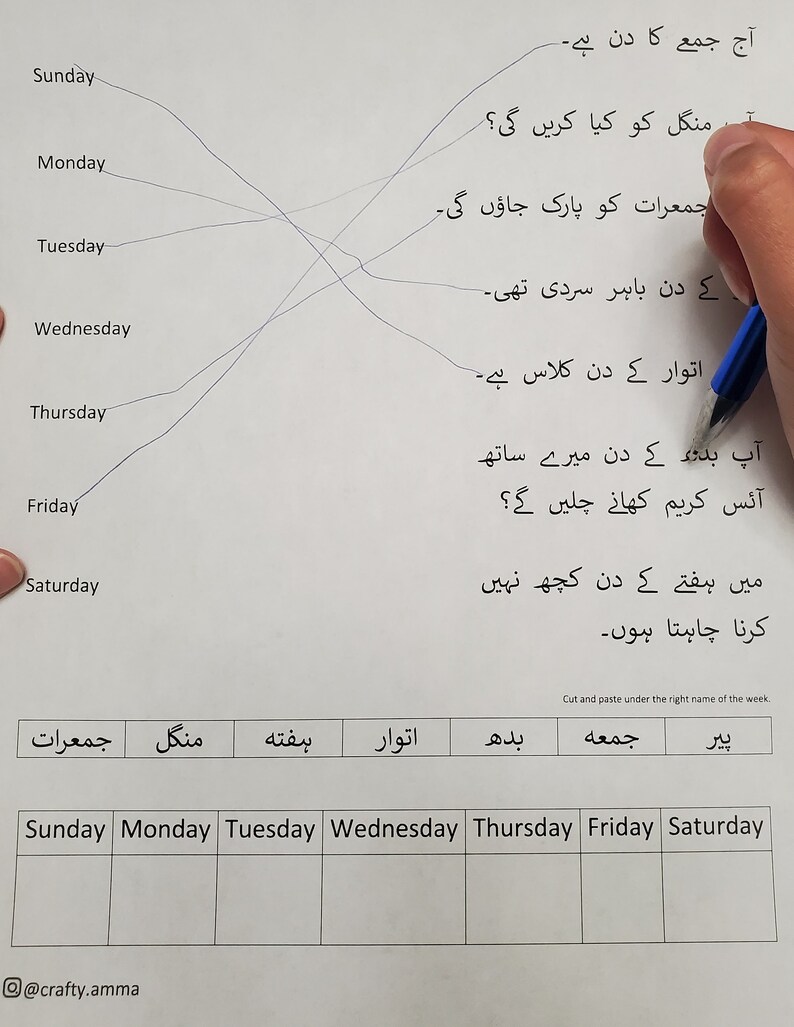 آج جمعے کا دن ہے۔
Sunday
منگل کو کیا کریں گی؟
Monday
جمعرات کو پارک جاؤں گی۔
Tuesday
کے دن باہر سردی تھی۔
Wednesday
اتوار کے دن کلاس ہے۔
Thursday
آپ بدھ کے دن میرے ساتھ
آئس کریم کھانے چلیں گے؟
Friday
میں ہفتے کے دن کچھ نہیں
کرنا چاہتا ہوں۔
Saturday
Cut and paste under the right name of the week.
پیر جمعہ بدھ اتوار ہفتہ منگل جمعرات
Sunday Monday Tuesday Wednesday Thursday Friday Saturday
@crafty.amma